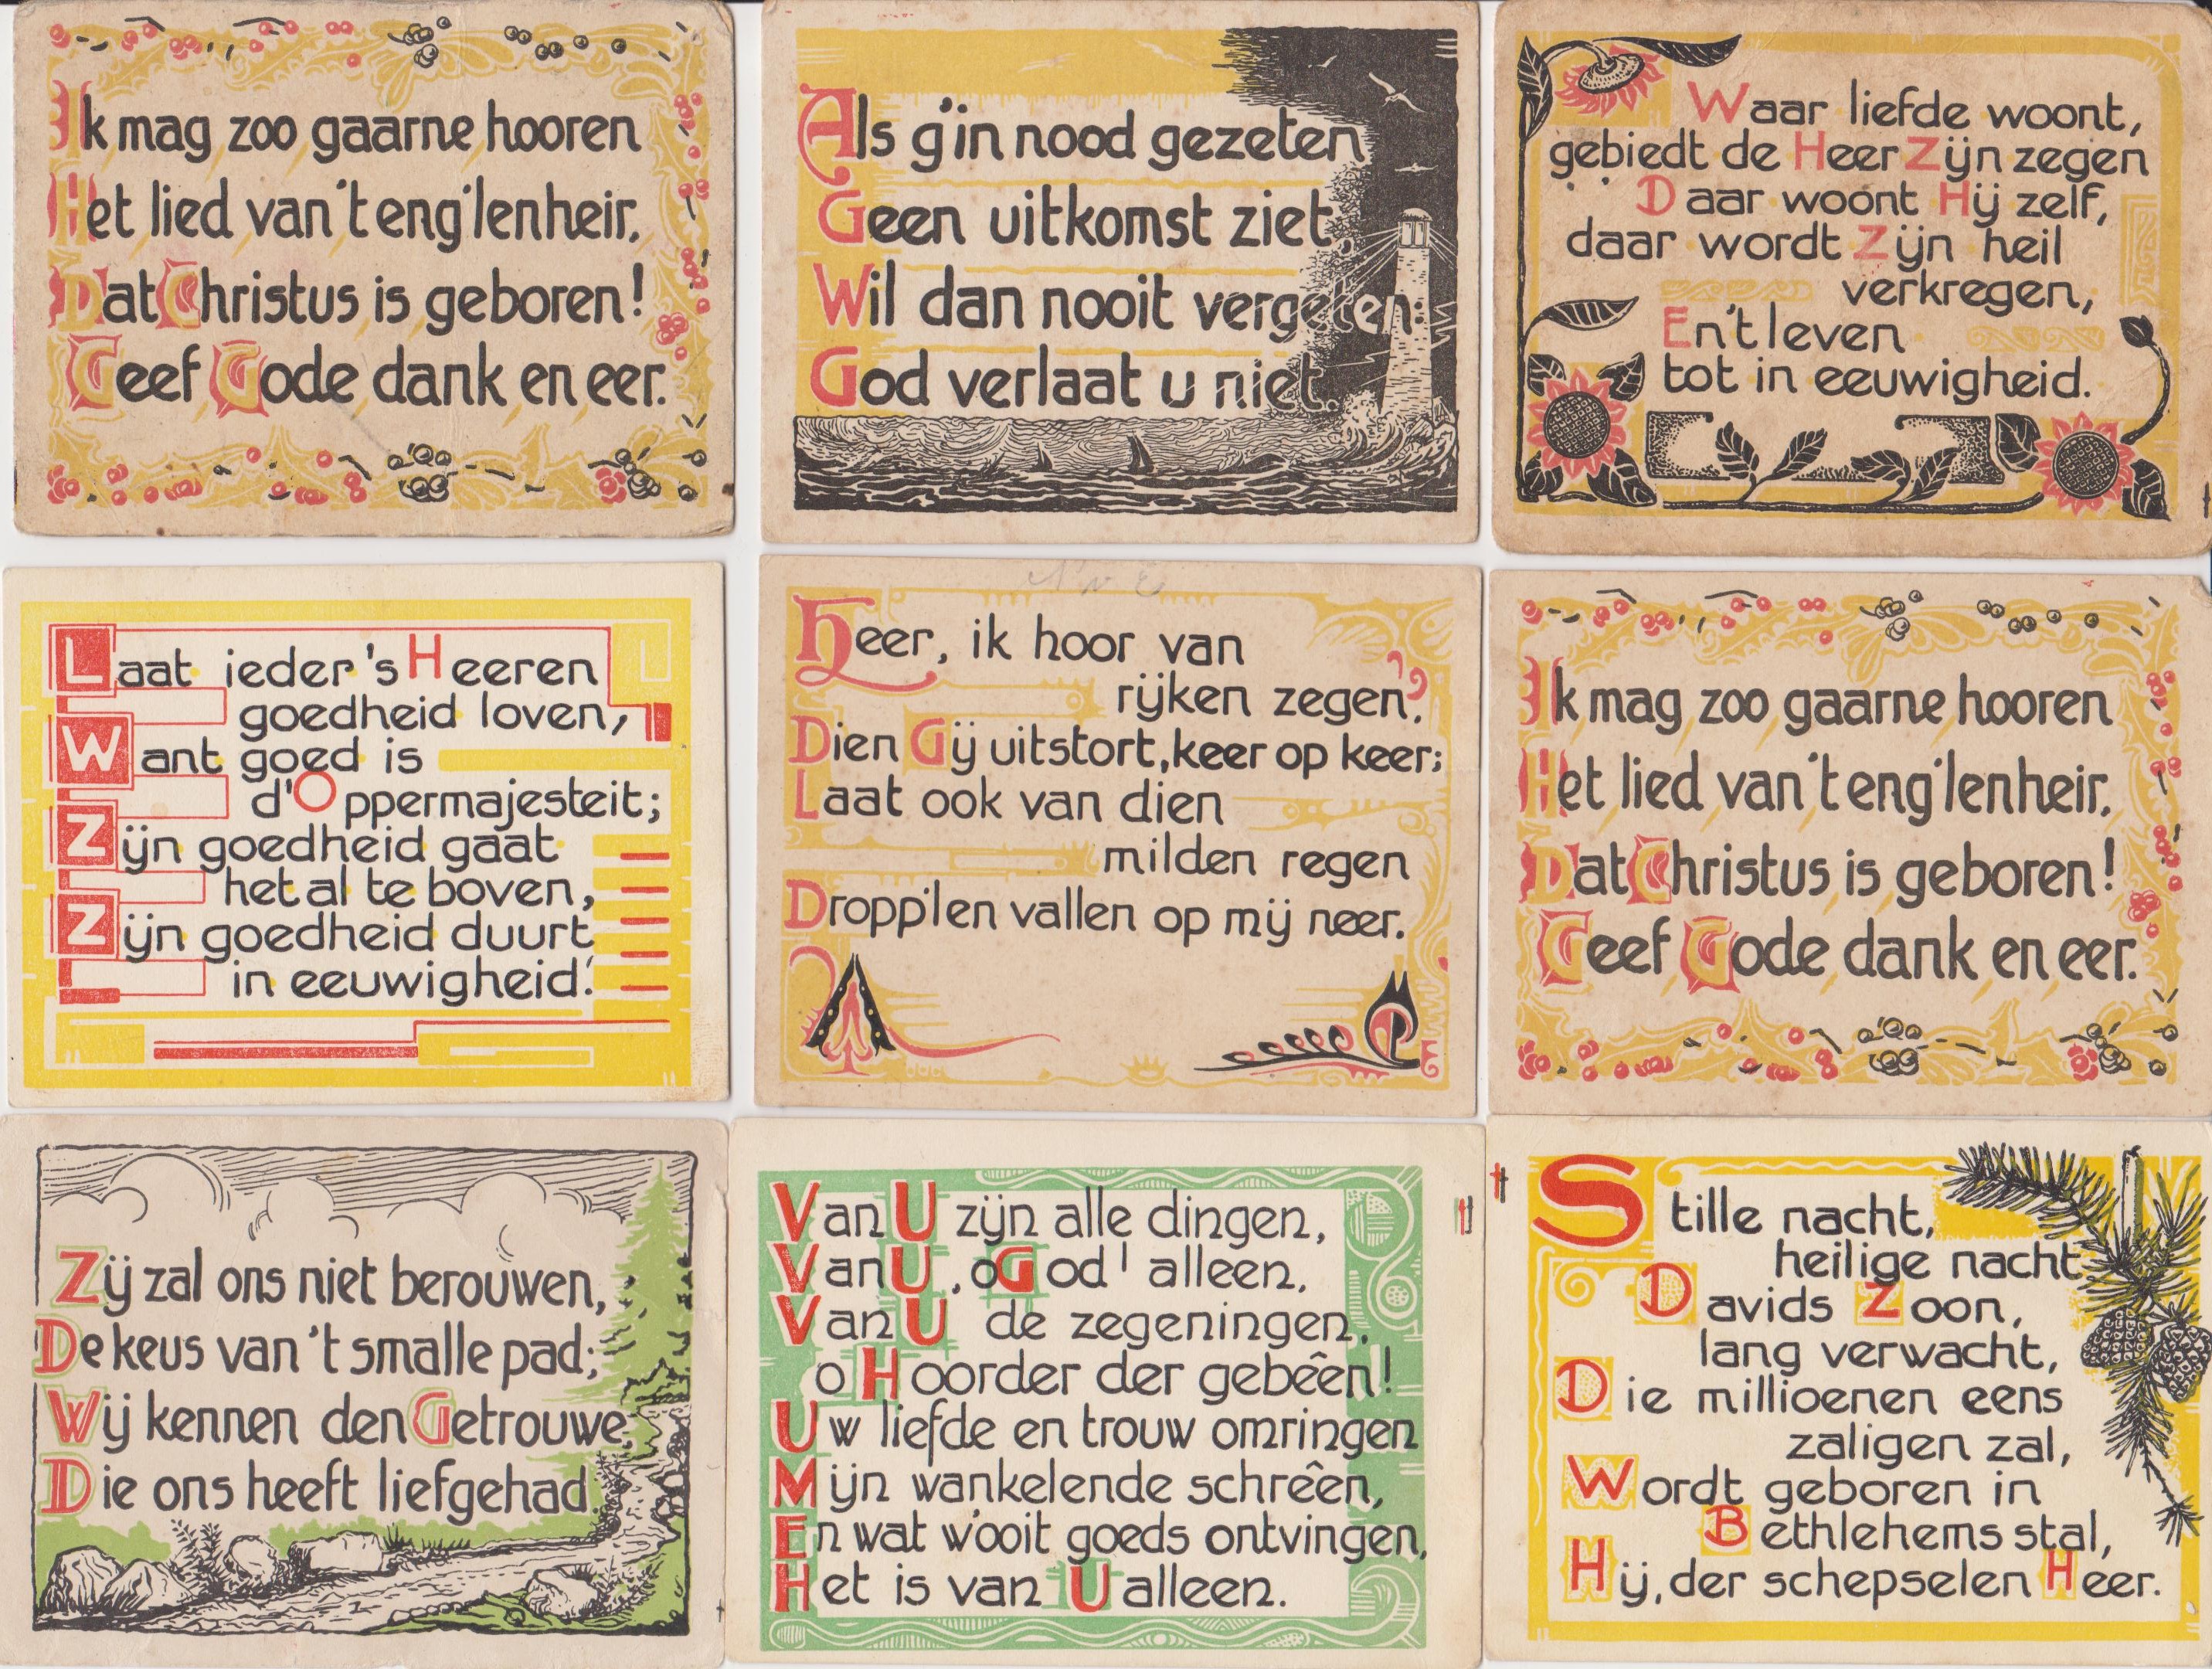 Ik mag zoo gaarne hooren
Het lied van 't eng'lenheir,
Dat Christus is geboren!
Geef Gode dank en eer.
Als g'in nood gezeten
Geen uitkomst ziet,
Wil dan nooit vergeten:
God verlaat u niet.
Waar liefde woont,
gebiedt de Heer Zijn zegen
Daar woont Hij zelf,
daar wordt Zijn heil
verkregen,
En 't leven
tot in eeuwigheid.
Laat ieder 's Heeren
goedheid loven,
Want goed is
d'Oppermajesteit;
Zijn goedheid gaat
het al te boven,
Zijn goedheid duurt
in eeuwigheid!
Heer, ik hoor van
rijken zegen,
Dien Gij uitstort, keer op keer;
Laat ook van dien
milden regen
Dropp'len vallen op mij neer.
Ik mag zoo gaarne hooren
Het lied van 't eng'lenheir,
Dat Christus is geboren!
Geef Gode dank en eer.
Zij zal ons niet berouwen,
De keus van 't smalle pad;
Wij kennen den Getrouwe,
Die ons heeft liefgehad.
Van U zijn alle dingen,
Van U, o God! alleen,
Van U de zegeningen,
o Hoorder der gebêen!
Uw liefde en trouw omringen
Mijn wankelende schrêen,
En wat w'ooit goeds ontvingen,
Het is van U alleen.
Stille nacht,
heilige nacht
Davids Zoon,
lang verwacht,
Die millioenen eens
zaligen zal,
Wordt geboren in
Bethlehems stal,
Hij, der schepselen Heer.